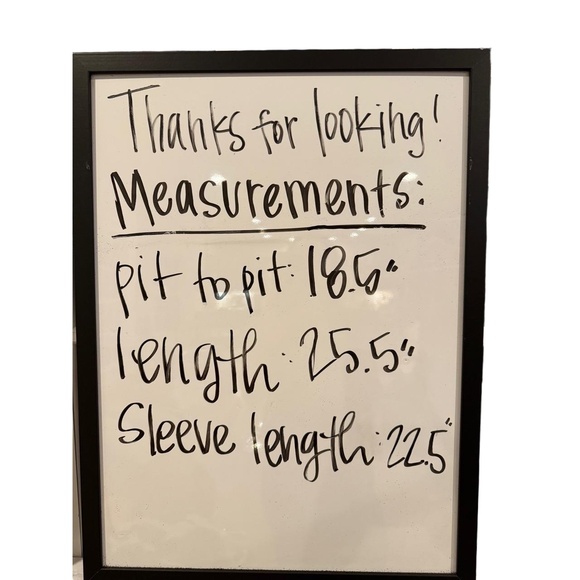 Thanks for looking!
Measurements:
pit to pit: 18.5"
length: 25.5"
Sleeve length: 22.5"